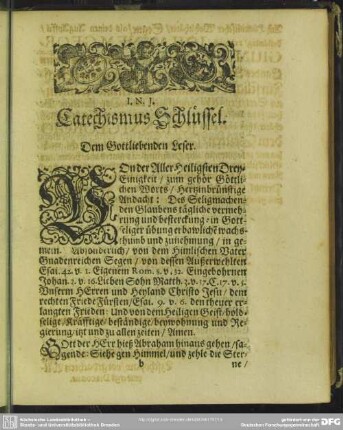 I. N. J.
Catechismus Schlüssel.
Dem Gottliebenden Leser.
VOn der Aller Heiligsten Drey-
Einigkeit / zum gehör Göttli-
chen Worts / Hertzinbrünstige
Andacht: Des Seligmachen-
den Glaubens tägliche vermeh-
rung und besterckung: in Gott-
seliger übung erbawliche wachs-
thumb und zunehmung / in ge-
mein. Absonderlich / von dem Himlischen Vater
Gnadenreichen Segen / von dessen Außerwehlten
Esai. 42. v. 1. Eigenem Rom. 8. v. 32. Eingebohrnen
Johan. 3. v. 16. Lieben Sohn Matth. 3. v. 17. C. 17. v. 5.
Unserm HErren und Heyland Christo Jesu / dem
rechten Friede Fürsten / Esai. 9. v. 6. den theuer er-
langten Frieden: Und von dem Heiligen Geist / hold-
selige / Kräfftige / beständige / beywohnung und Re-
gierung / itzt und zu allen zeiten / Amen.
GOtt der HErr hieß Abraham hinaus gehen / sa-
gende: Siehe gen Himmel / und zehle die Ster-
b
ne /